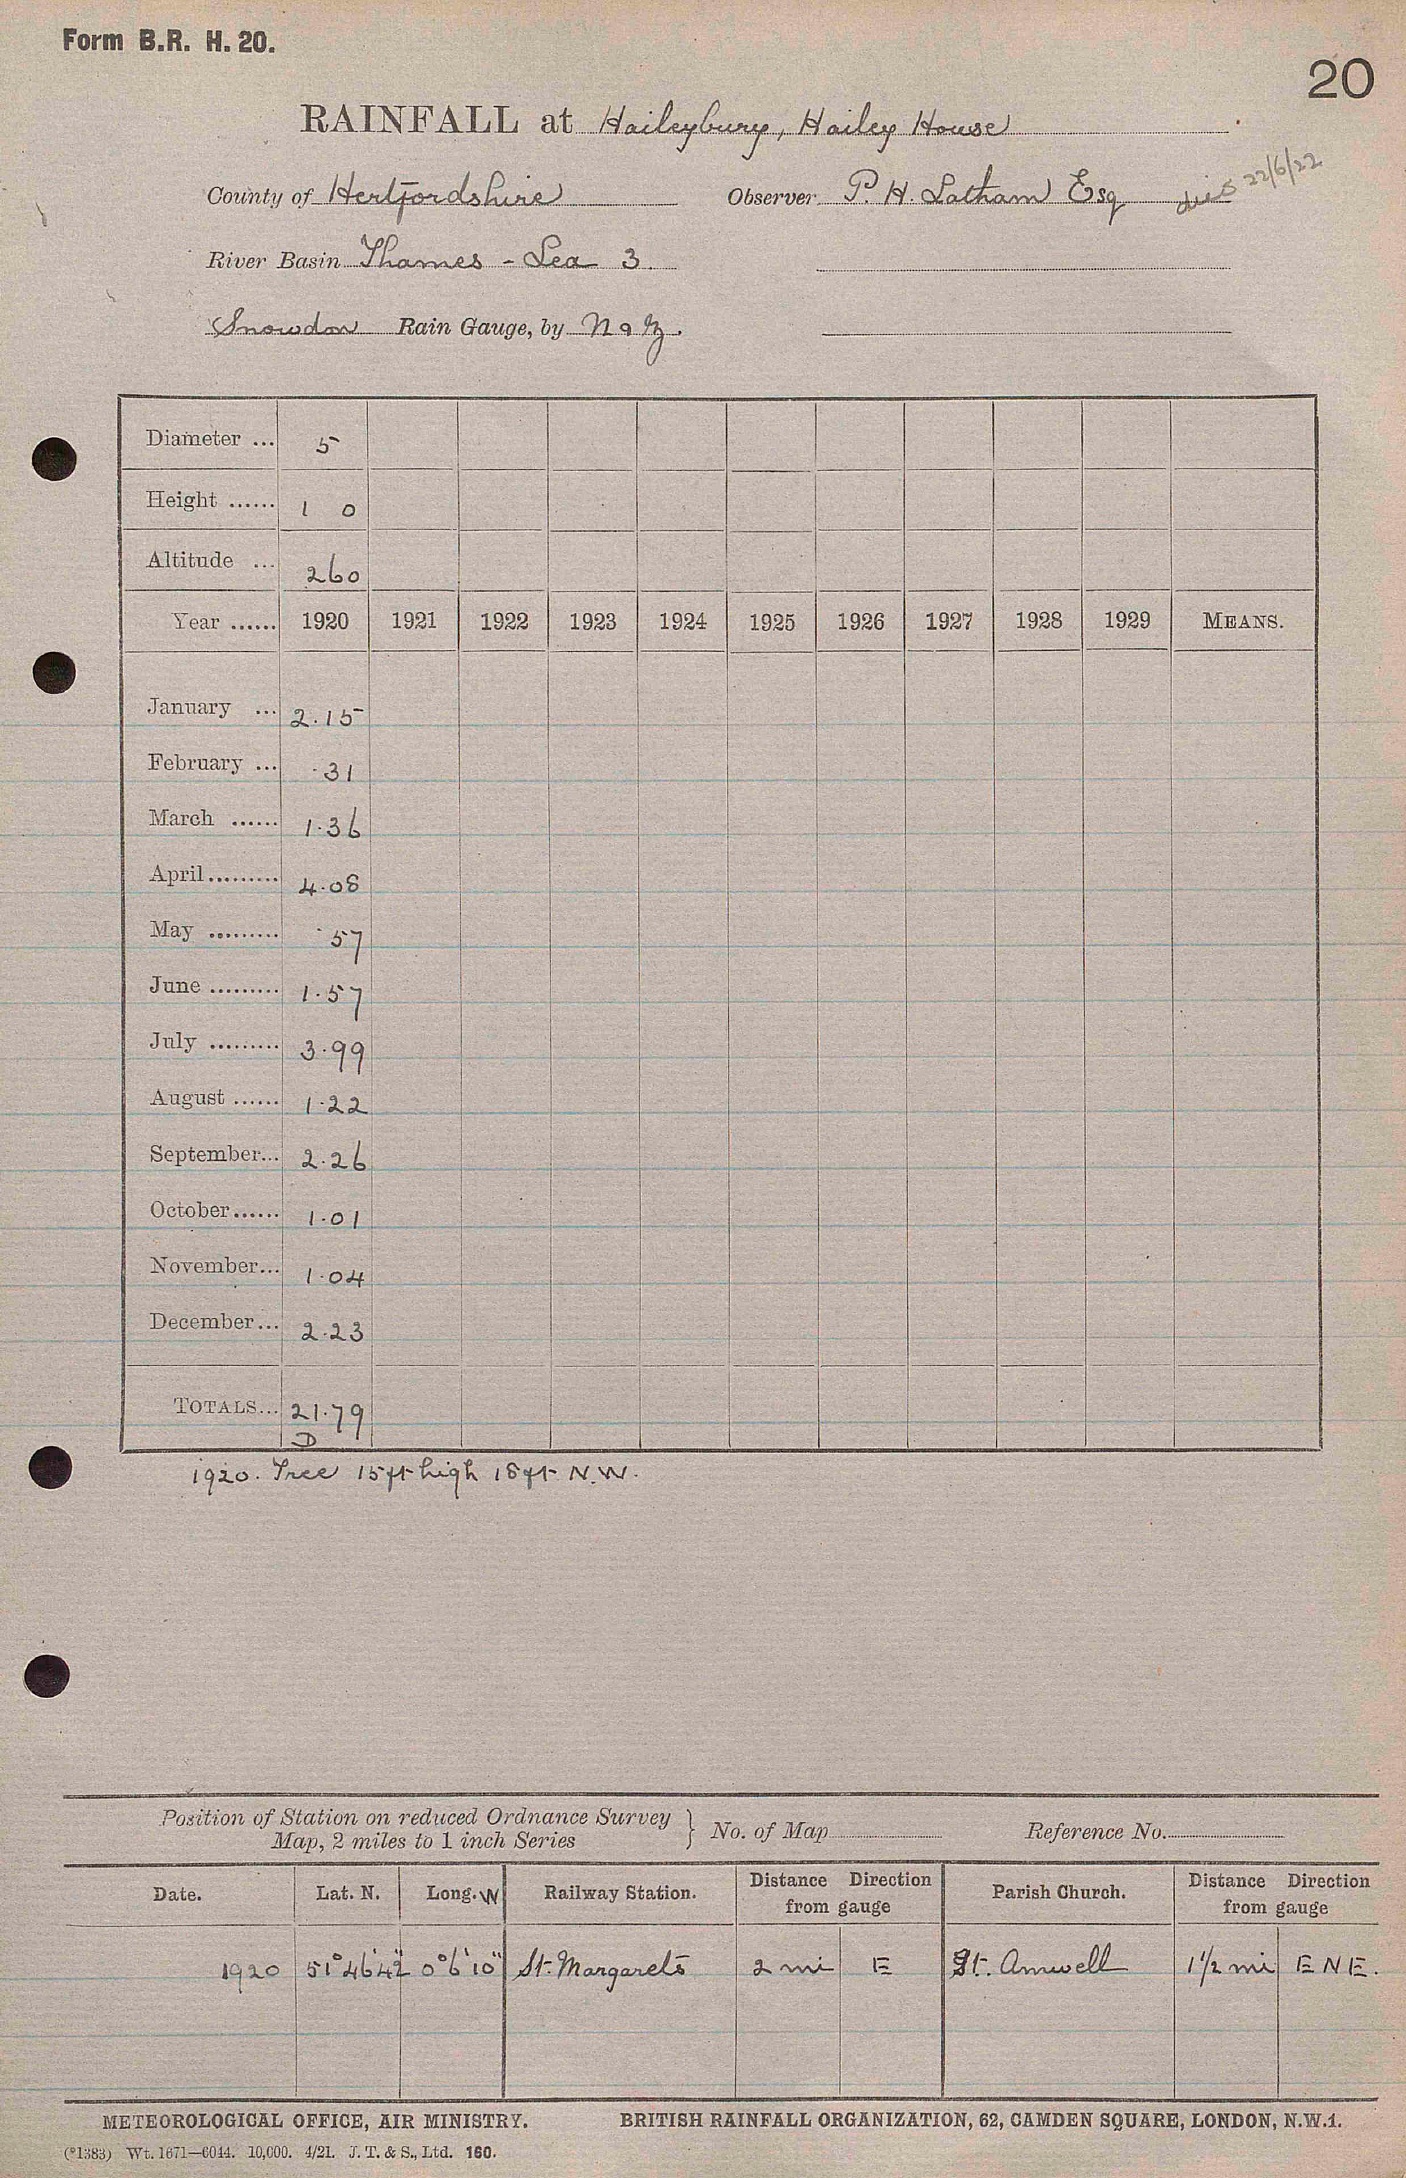 Form B.R. H. 20.
20
RAINFALL at Haileybury, Hailey House
County of Hertfordshire Observer P. H. Latham Esq
22/6/22
River Basin Thames - Lea 3.
Snowdon Rain Gauge, by N & Z.
Diameter ... 5
Height ...... 1 0
Altitude ... 260
Year ...... 1920 1921 1922 1923 1924 1925 1926 1927 1928 1929 MEANS.
January ... 2.15
February ... .31
March ...... 1.36
April ......... 4.08
May ......... .57
June ......... 1.57
July ......... 3.99
August ...... 1.22
September... 2.26
October...... 1.01
November... 1.04
December... 2.23
TOTALS... 21.79
D
1920. Tree 15ft high 18ft N.W.
Position of Station on reduced Ordnance Survey
Map, 2 miles to 1 inch Series } No. of Map Reference No.
Date. Lat. N. Long. W Railway Station. Distance Direction from gauge Parish Church. Distance Direction from gauge
1920 51°46'42" 0°6'10" St. Margarets 2 mi E Gt. Amwell 1 1/2 mi E N E.
METEOROLOGICAL OFFICE, AIR MINISTRY. BRITISH RAINFALL ORGANIZATION, 62, CAMDEN SQUARE, LONDON, N.W.1.
(*1383) Wt. 1671—6044. 10,000. 4/21. J. T. & S., Ltd. 160.